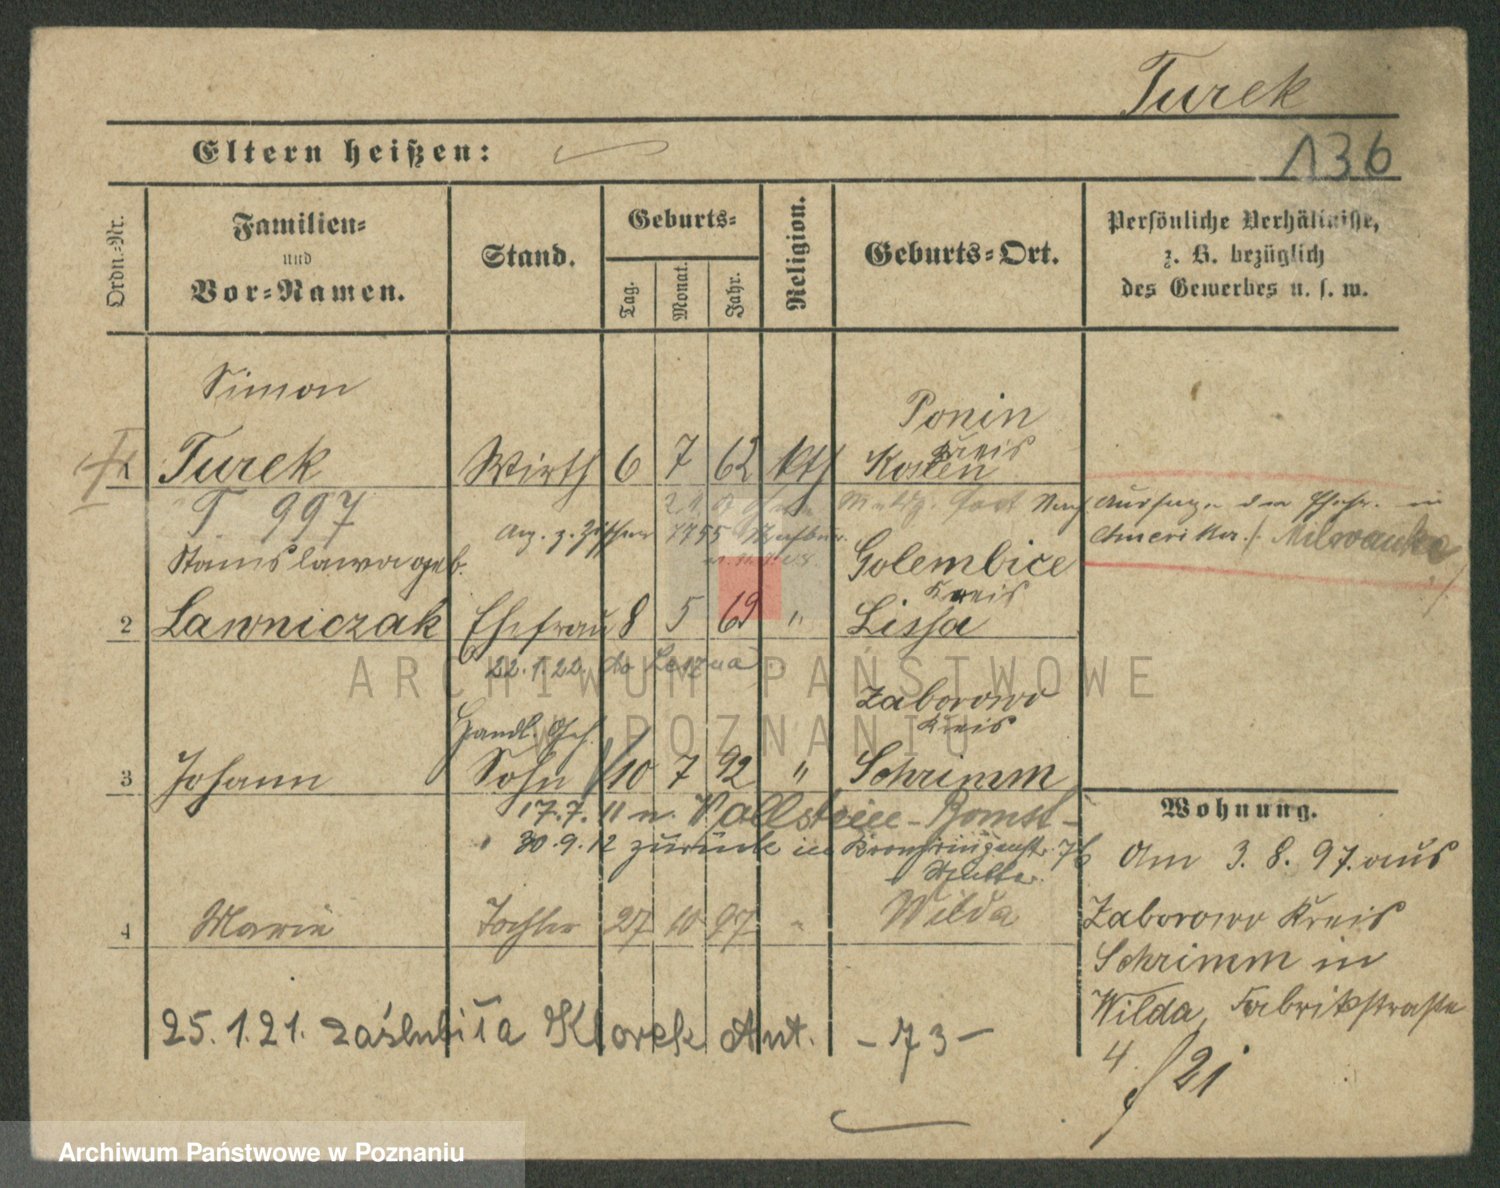 Turek
Eltern heißen:
136
Ordn.-Nr.
Familien-
und
Vor-Namen.
Stand.
Geburts-
Tag.
Monat.
Jahr.
Religion.
Geburts-Ort.
Persönliche Verhältnisse,
z. B. bezüglich
des Gewerbes u. s. w.
Simon
Turek
Wirth 6 7 62 kth
Ponin
Kreis
Kosten
T 997
Amerika. Milwaukee
Stanislawa geb.
2 Lawniczak Ehefrau 8 5 69 "
Golembice
Kreis
Lissa
22.1.22. do Leszna
Handl. Geh.
3 Johann Sohn 10 7 92 "
Zaborowo
Kreis
Schrimm
17.7.11 n. Wallstein - Bomst -
30.9.12 zurück in Kronprinzenstr. 76
Mutter.
4 Marie Tochter 27 10 97 "
Wilda
25.1.21. zaślubiła Klorek Ant. - 73 -
Wohnung.
Am 3.8.97. aus
Zaborowo Kreis
Schrimm in
Wilda, Fabrikstraße
4.
21
ARCHIWUM PAŃSTWOWE
W POZNANIU
Archiwum Państwowe w Poznaniu